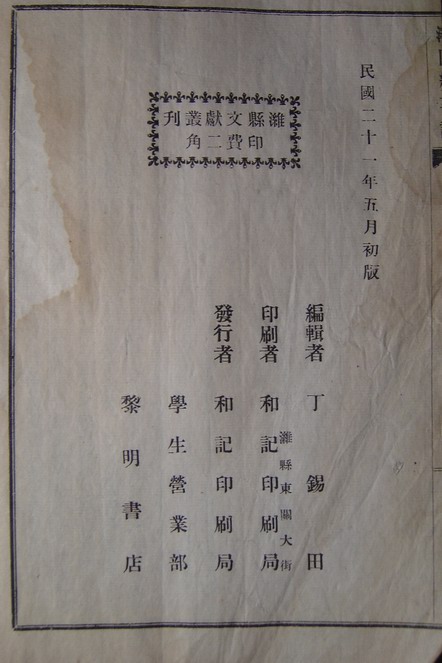 民國二十一年五月初版
濰縣文獻叢刊
印費二角
編輯者 丁錫田
濰縣東關大街
印刷者 和記印刷局
發行者 和記印刷局
學生營業部
黎明書店